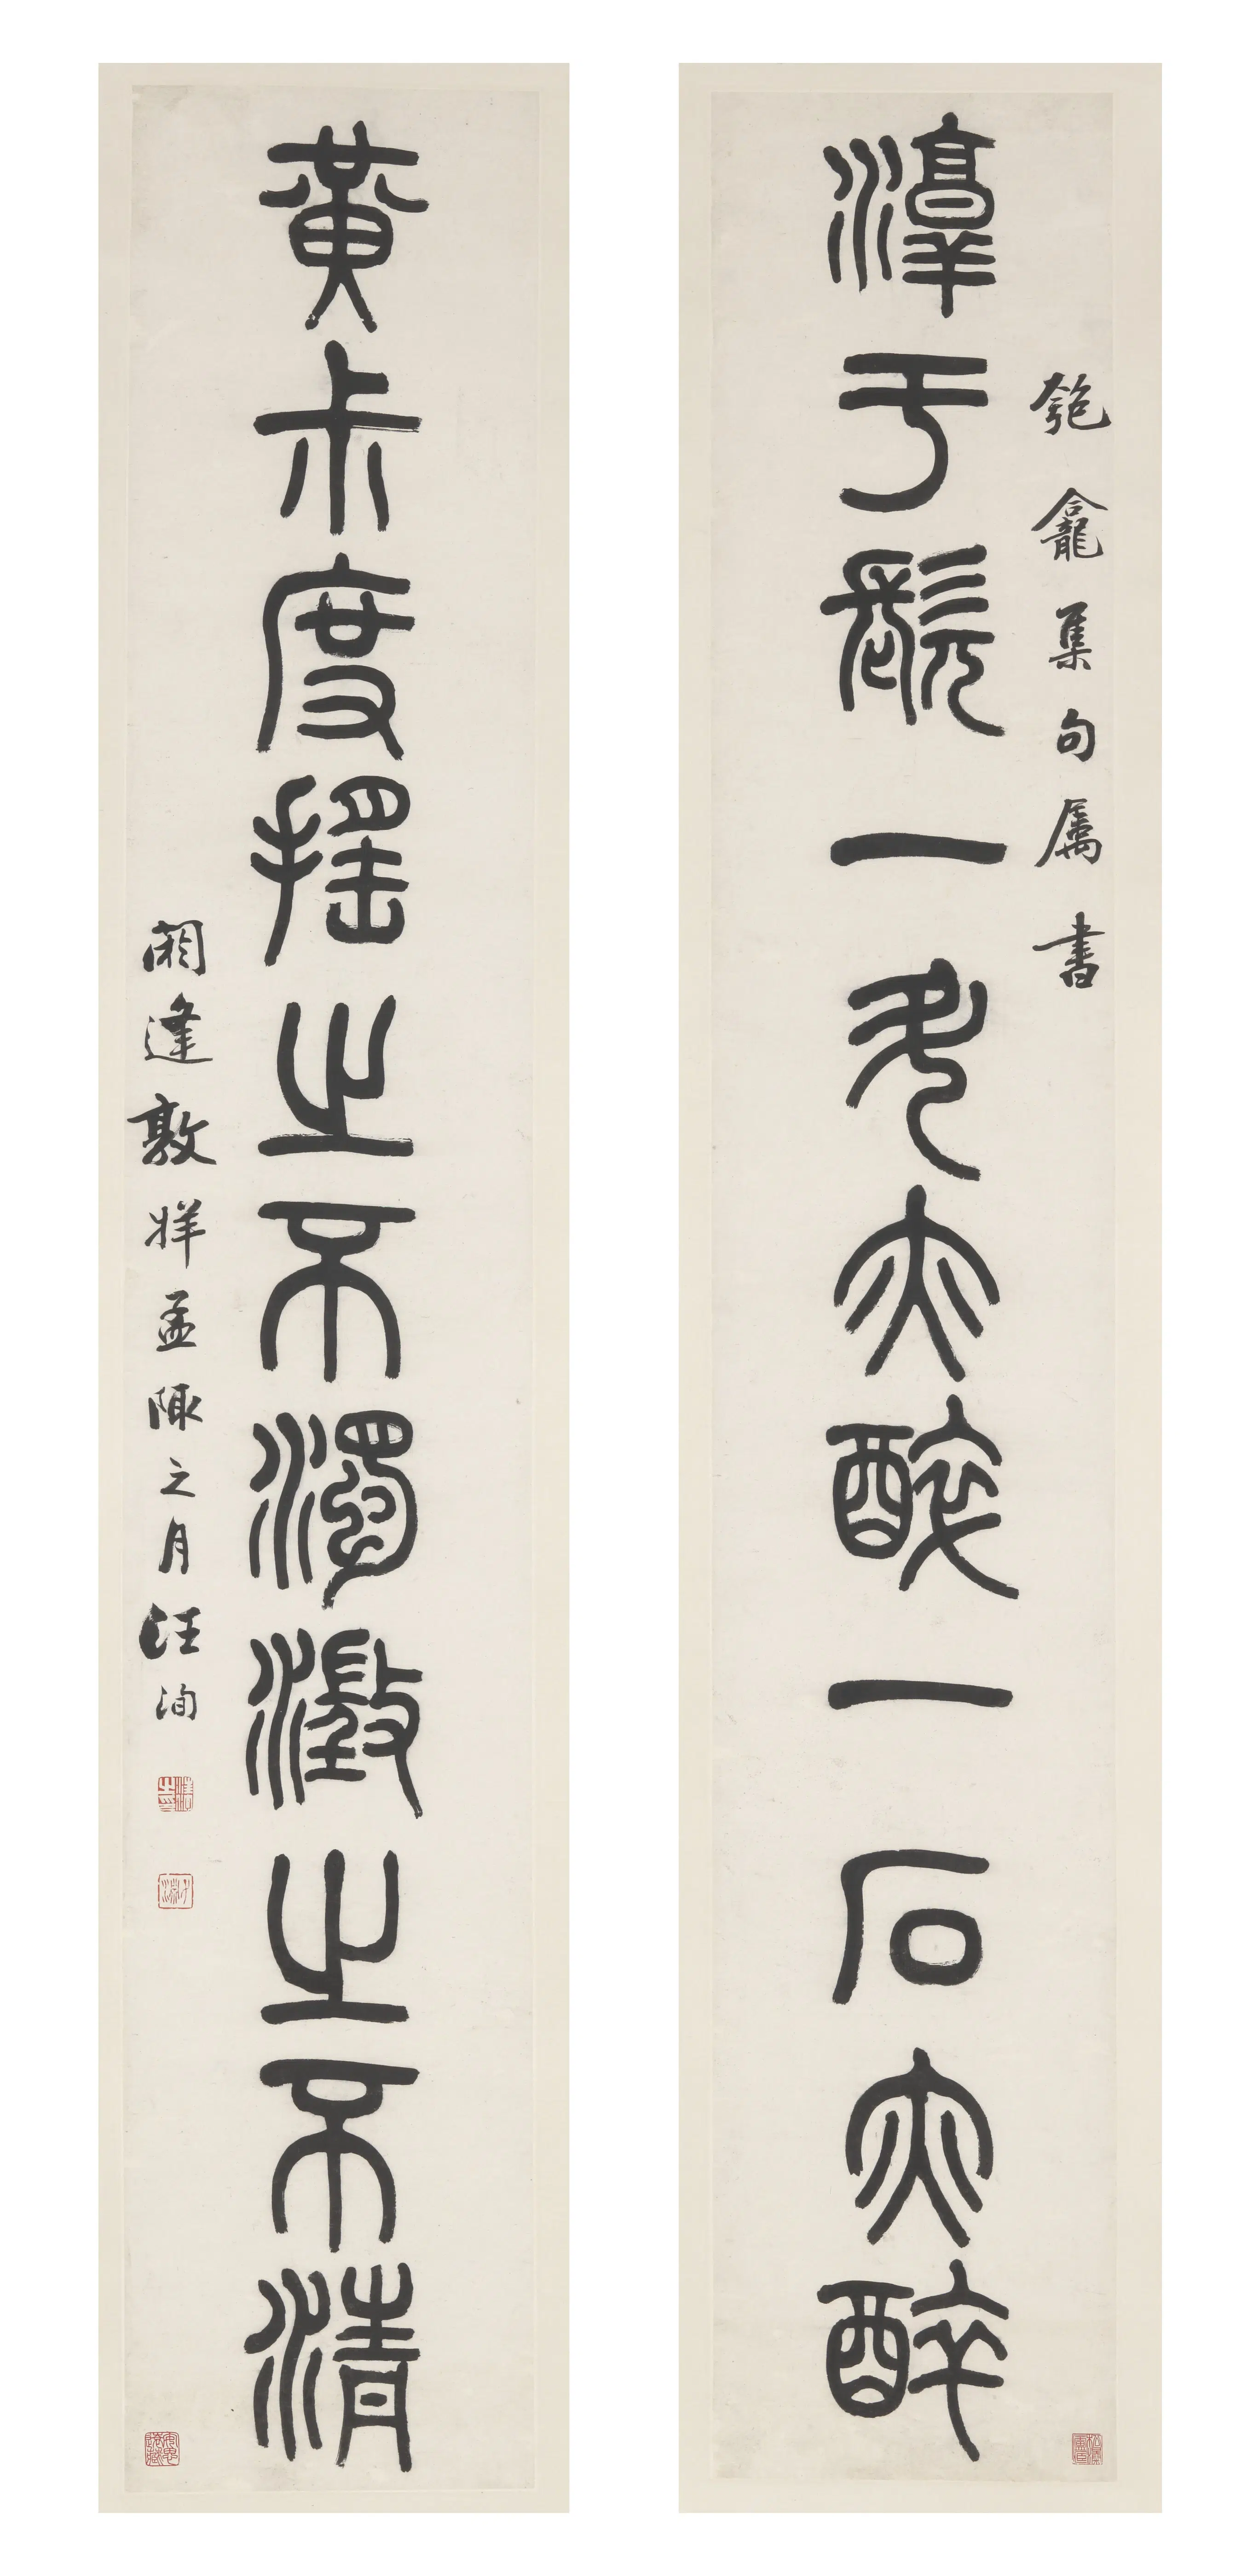 匏龕集句属書
淳于髡一斗亦醉一石亦醉
黃尗度搖之不濁澂之不清
閼逢敦牂孟陬之月汪洵